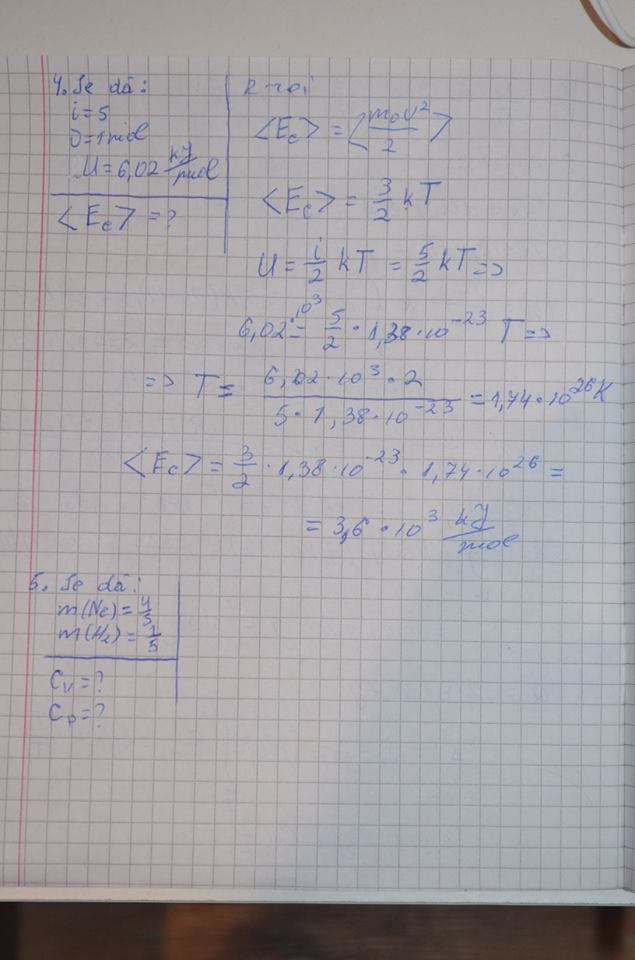 4. Se dă:
i = 5
υ = 1 mol
U = 6,02 kJ/mol
<Ec> = ?
R-roi
<Ec> = <m₀v²/2>
<Ec> = 3/2 kT
U = i/2 kT = 5/2 kT =>
6,02·10³ = 5/2 · 1,38·10⁻²³ T =>
=> T = 6,02·10³·2 / 5·1,38·10⁻²³ = 1,74·10²⁶ K
<Ec> = 3/2 · 1,38·10⁻²³ · 1,74·10²⁶ =
= 3,6 · 10³ kJ/mol
5. Se dă:
m(Ne) = 4/5
m(H₂) = 1/5
Cv = ?
Cp = ?